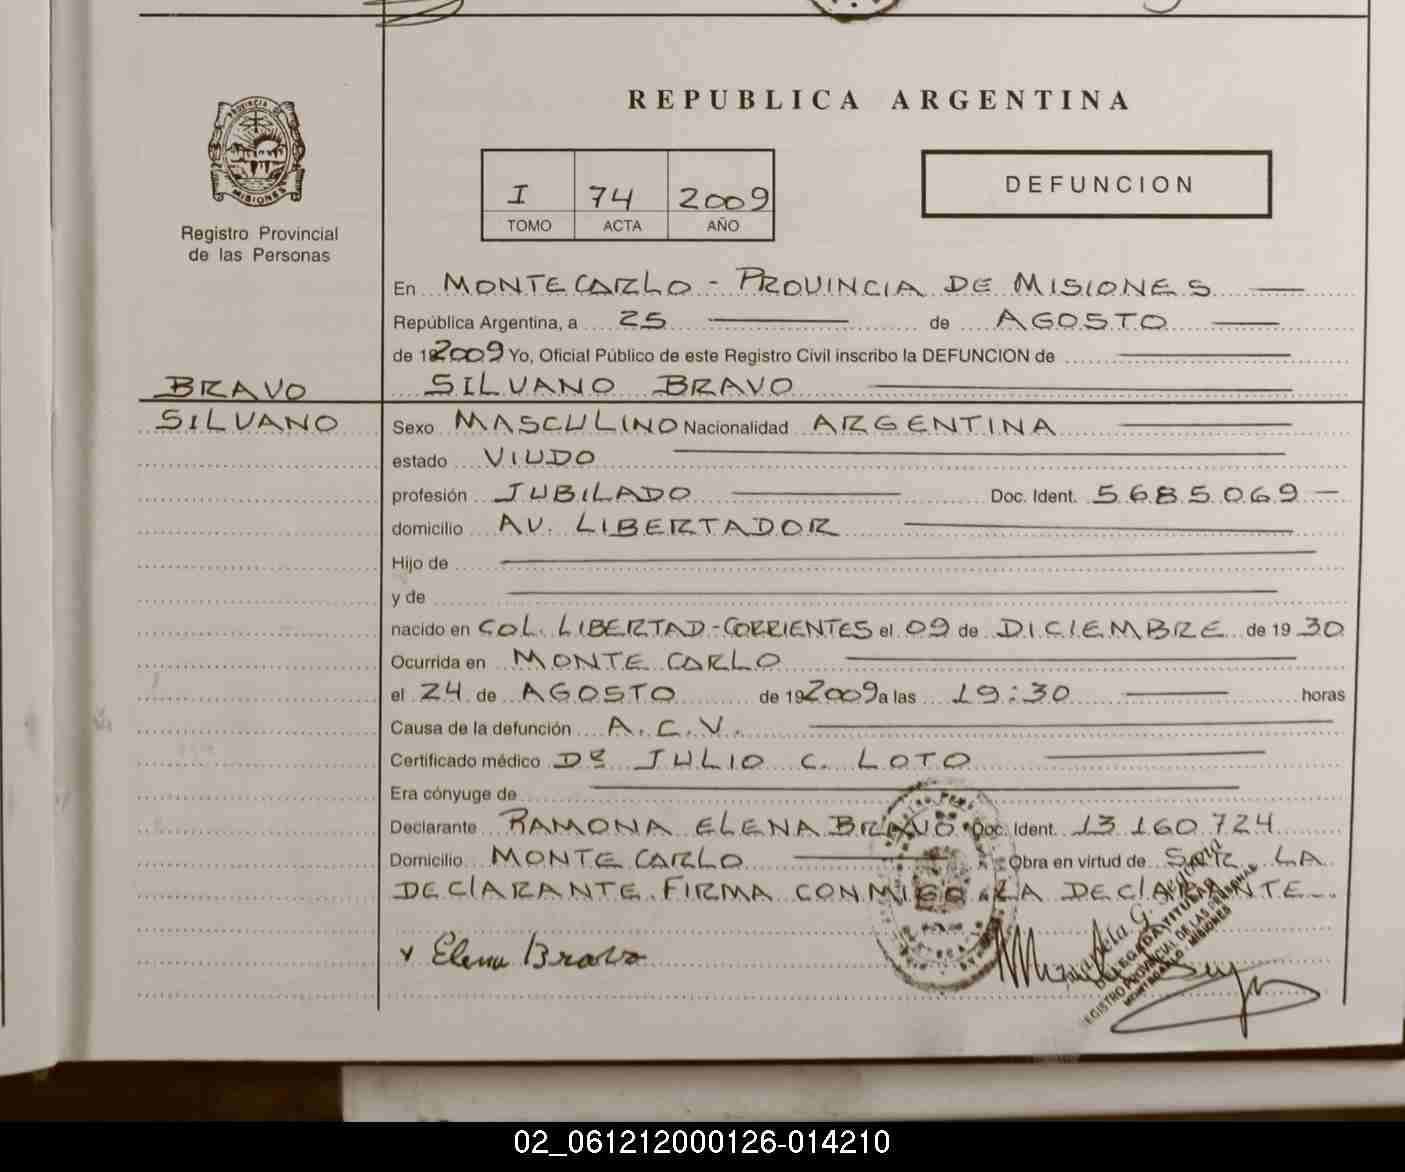 REPUBLICA ARGENTINA
PROVINCIA DE
MISIONES
I 74 2009
TOMO ACTA AÑO
DEFUNCION
Registro Provincial
de las Personas
En MONTECARLO - PROVINCIA DE MISIONES
República Argentina, a 25 de AGOSTO
de 192009 Yo, Oficial Público de este Registro Civil inscribo la DEFUNCION de
BRAVO SILVANO BRAVO
SILVANO Sexo MASCULINO Nacionalidad ARGENTINA
estado VIUDO
profesión JUBILADO Doc. Ident. 5.685.069
domicilio AV. LIBERTADOR
Hijo de
y de
nacido en COL. LIBERTAD-CORRIENTES el 09 de DICIEMBRE de 1930
Ocurrida en MONTECARLO
el 24 de AGOSTO de 192009 a las 19:30 horas
Causa de la defunción A.C.V.
Certificado médico DR JULIO C. LOTO
Era cónyuge de
Declarante RAMONA ELENA BRAVO Doc. Ident. 13.160.724
Domicilio MONTECARLO Obra en virtud de SER LA
DECLARANTE. FIRMA CONMIGO LA DECLARANTE-.
x Elena Bravo
DELEGADA TITULAR
REGISTRO PROVINCIAL DE LAS PERSONAS
MONTECARLO - MISIONES
02_061212000126-014210